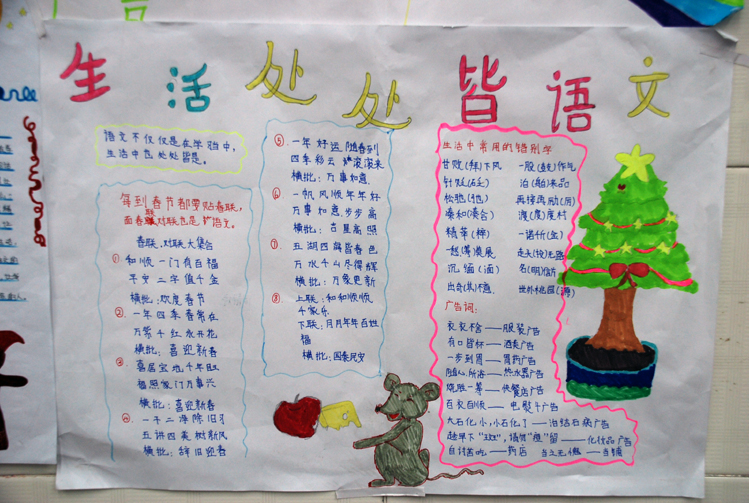 生活处处皆语文
语文不仅仅是在学习中,
生活中也处处皆是。
每到春节都要贴春联,
而春联对联也是语文。
春联、对联大集合
① 和顺一门有百福
平安二字值千金
横批:欢度春节
②. 一年四季春常在
万紫千红永开花
横批:喜迎新春
③ 喜居宝地千年旺
福照家门万事兴
横批:喜迎新春
④. 一干二净除旧习
五讲四美树新风
横批:辞旧迎春
⑤. 一年好运随春到
四季彩云滚滚来
横批:万事如意.
⑥. 一帆风顺年年好
万事如意步步高
横批:吉星高照
⑦. 五湖四海皆春色
万水千山尽得辉
横批:万象更新
⑧. 上联:和和顺顺
千家乐
下联:月月年年百姓
福
横批:四季民安
生活中常用的错别字
甘败(拜)下风
针贬(砭)
松驰(弛)
精萃(粹)
沉缅(湎)
一股(鼓)作气
再接再励(厉)
一诺千斤(金)
名(明)信片
世外桃园(源)
广告词:
衣衣不舍——服装广告
有口皆杯——酒类广告
一步到胃——胃药广告
随心所浴——热水器广告
饶胜一筹——快餐店广告
百衣百顺——电熨斗广告
大石化小,小石化了——治结石病广告
趁早下"斑",请勿"痘"留——化妆品广告
自讨苦吃——药店 当之无愧——当铺